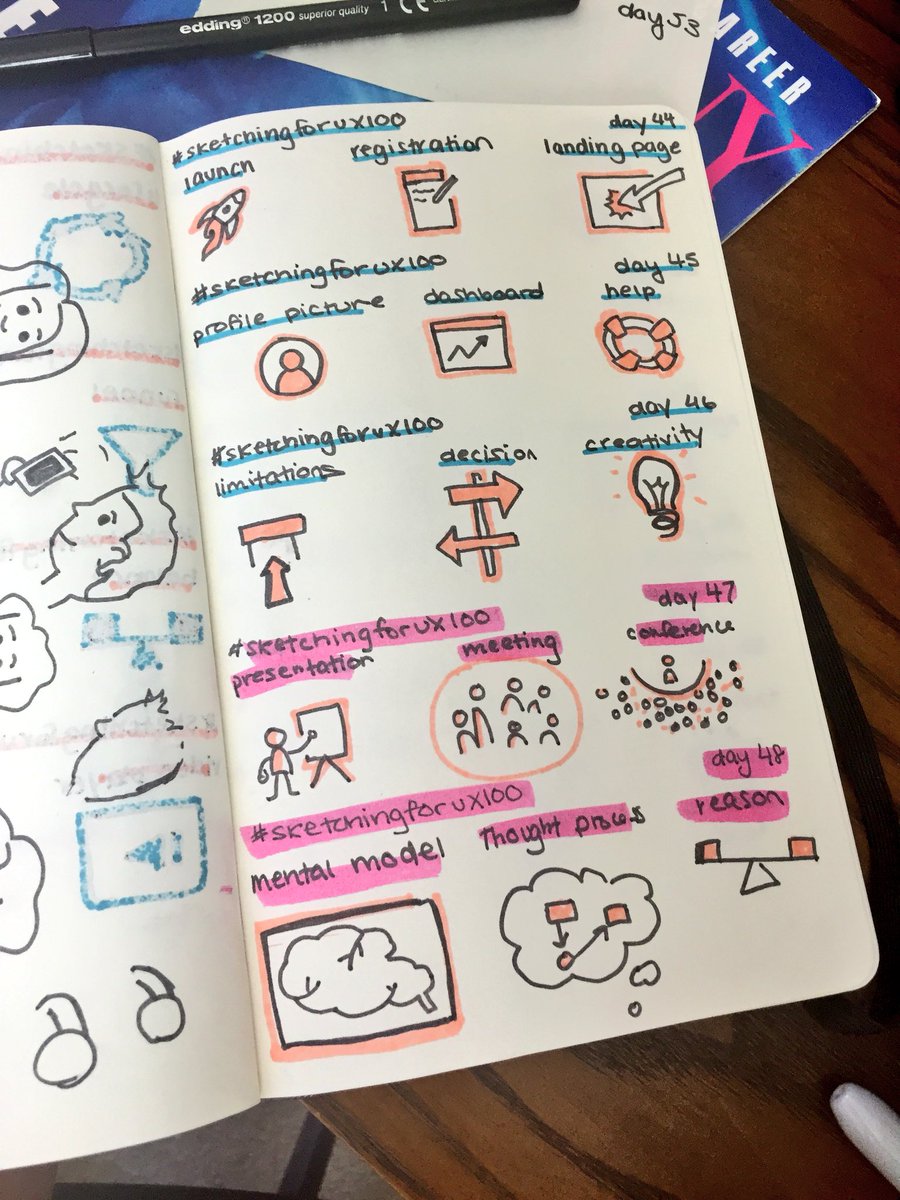 edding® 1200 superior quality 1 CE
day 53
AREER
#sketchingforux100 day 44
launch registration landing page
#sketchingforux100 day 45
profile picture dashboard help
#sketchingforux100 day 46
limitations decision creativity
#sketchingforux100 day 47
presentation meeting conference
#sketchingforux100 day 48
mental model Thought process reason